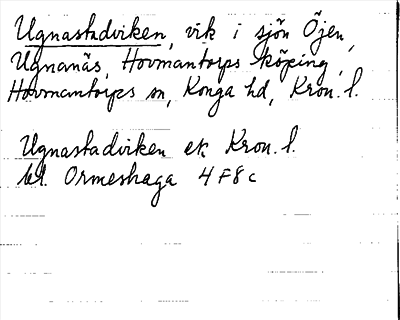 Ugnastadviken, vik i sjön Öjen,
Ugnanäs, Hovmantorps köping,
Hovmantorps sn, Konga hd, Kron. l.
Ugnastadviken ek Kron. l.
bl. Ormeshaga 4F8c